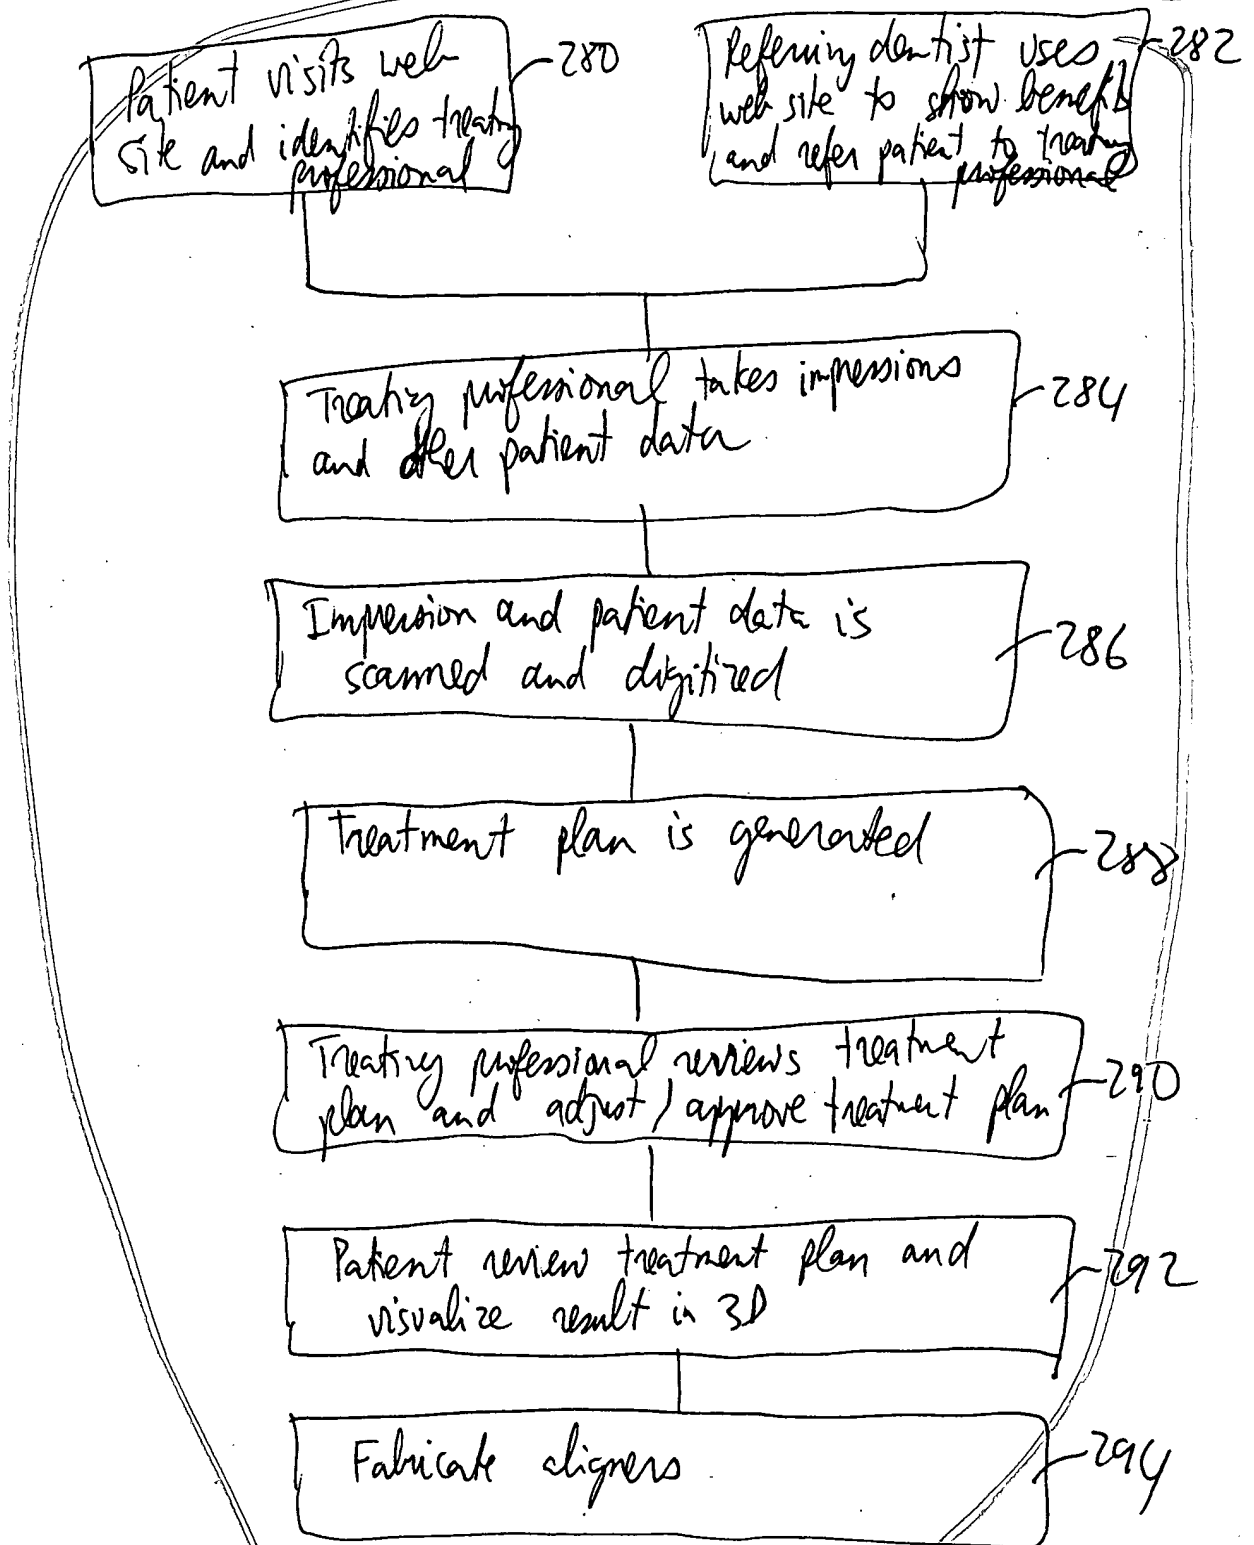 Patient visits web
site and identifies treating
professional
280
Referring dentist uses
web site to show benefits
and refer patient to treating
professional
282
Treating professional takes impressions
and other patient data
284
Impression and patient data is
scanned and digitized
286
Treatment plan is generated
288
Treating professional reviews treatment
plan and adjust/approve treatment plan
290
Patient review treatment plan and
visualize result in 3D
292
Fabricate aligners
294